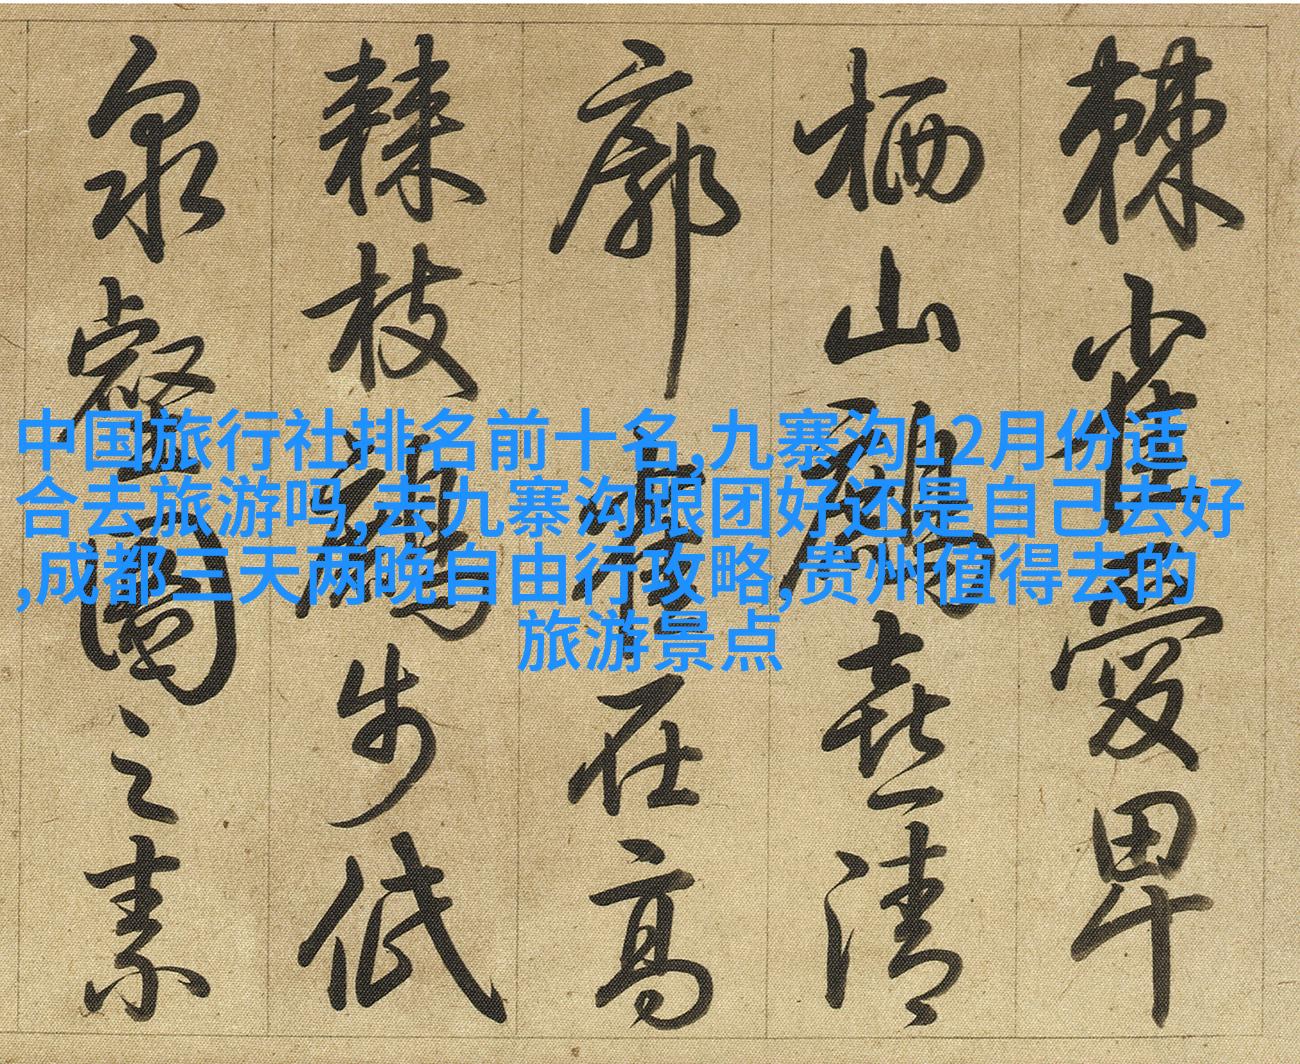 棘雀愛卑
栖山喜清
廓在高
棘枝步低
泉壑圖之素
中国旅行社排名前十名,九寨沟12月份适
合去旅游吗,去九寨沟跟团好还是自己去好
,成都三天两晚自由行攻略,贵州值得去的
旅游景点